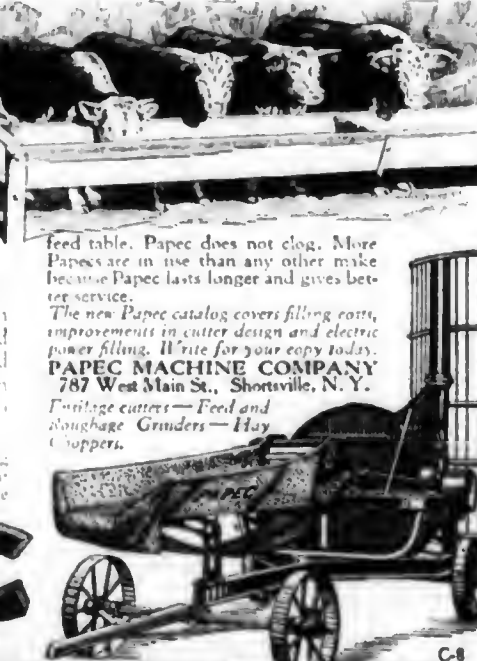 feed table. Papec does not clog. More
Papecs are in use than any other make
because Papec lasts longer and gives bet-
ter service.
The new Papec catalog covers filling costs,
improvements in cutter design and electric
power filling. Write for your copy today.
PAPEC MACHINE COMPANY
787 West Main St., Shortsville, N. Y.
Ensilage cutters — Feed and
Roughage Grinders — Hay
Choppers.
PEC
C-8